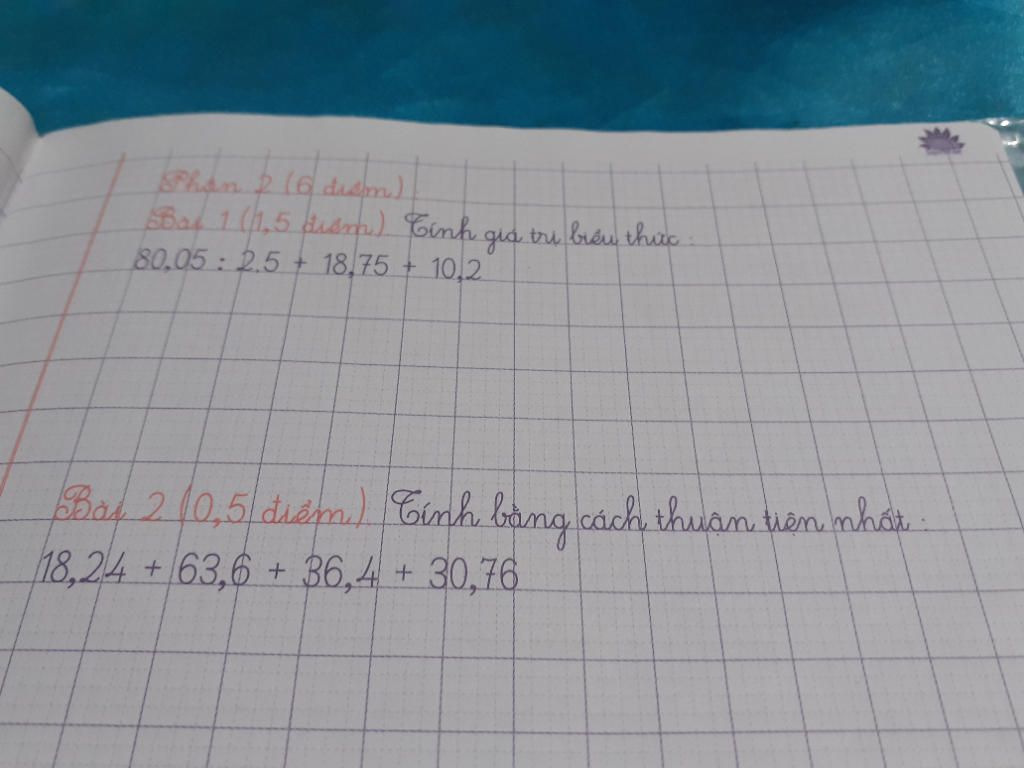 Phần 2 (6 điểm)
Bài 1 (1,5 điểm) Tính giá trị biểu thức:
80,05 : 2.5 + 18,75 + 10,2
Bài 2 (0,5 điểm). Tính bằng cách thuận tiện nhất:
18,24 + 63,6 + 36,4 + 30,76